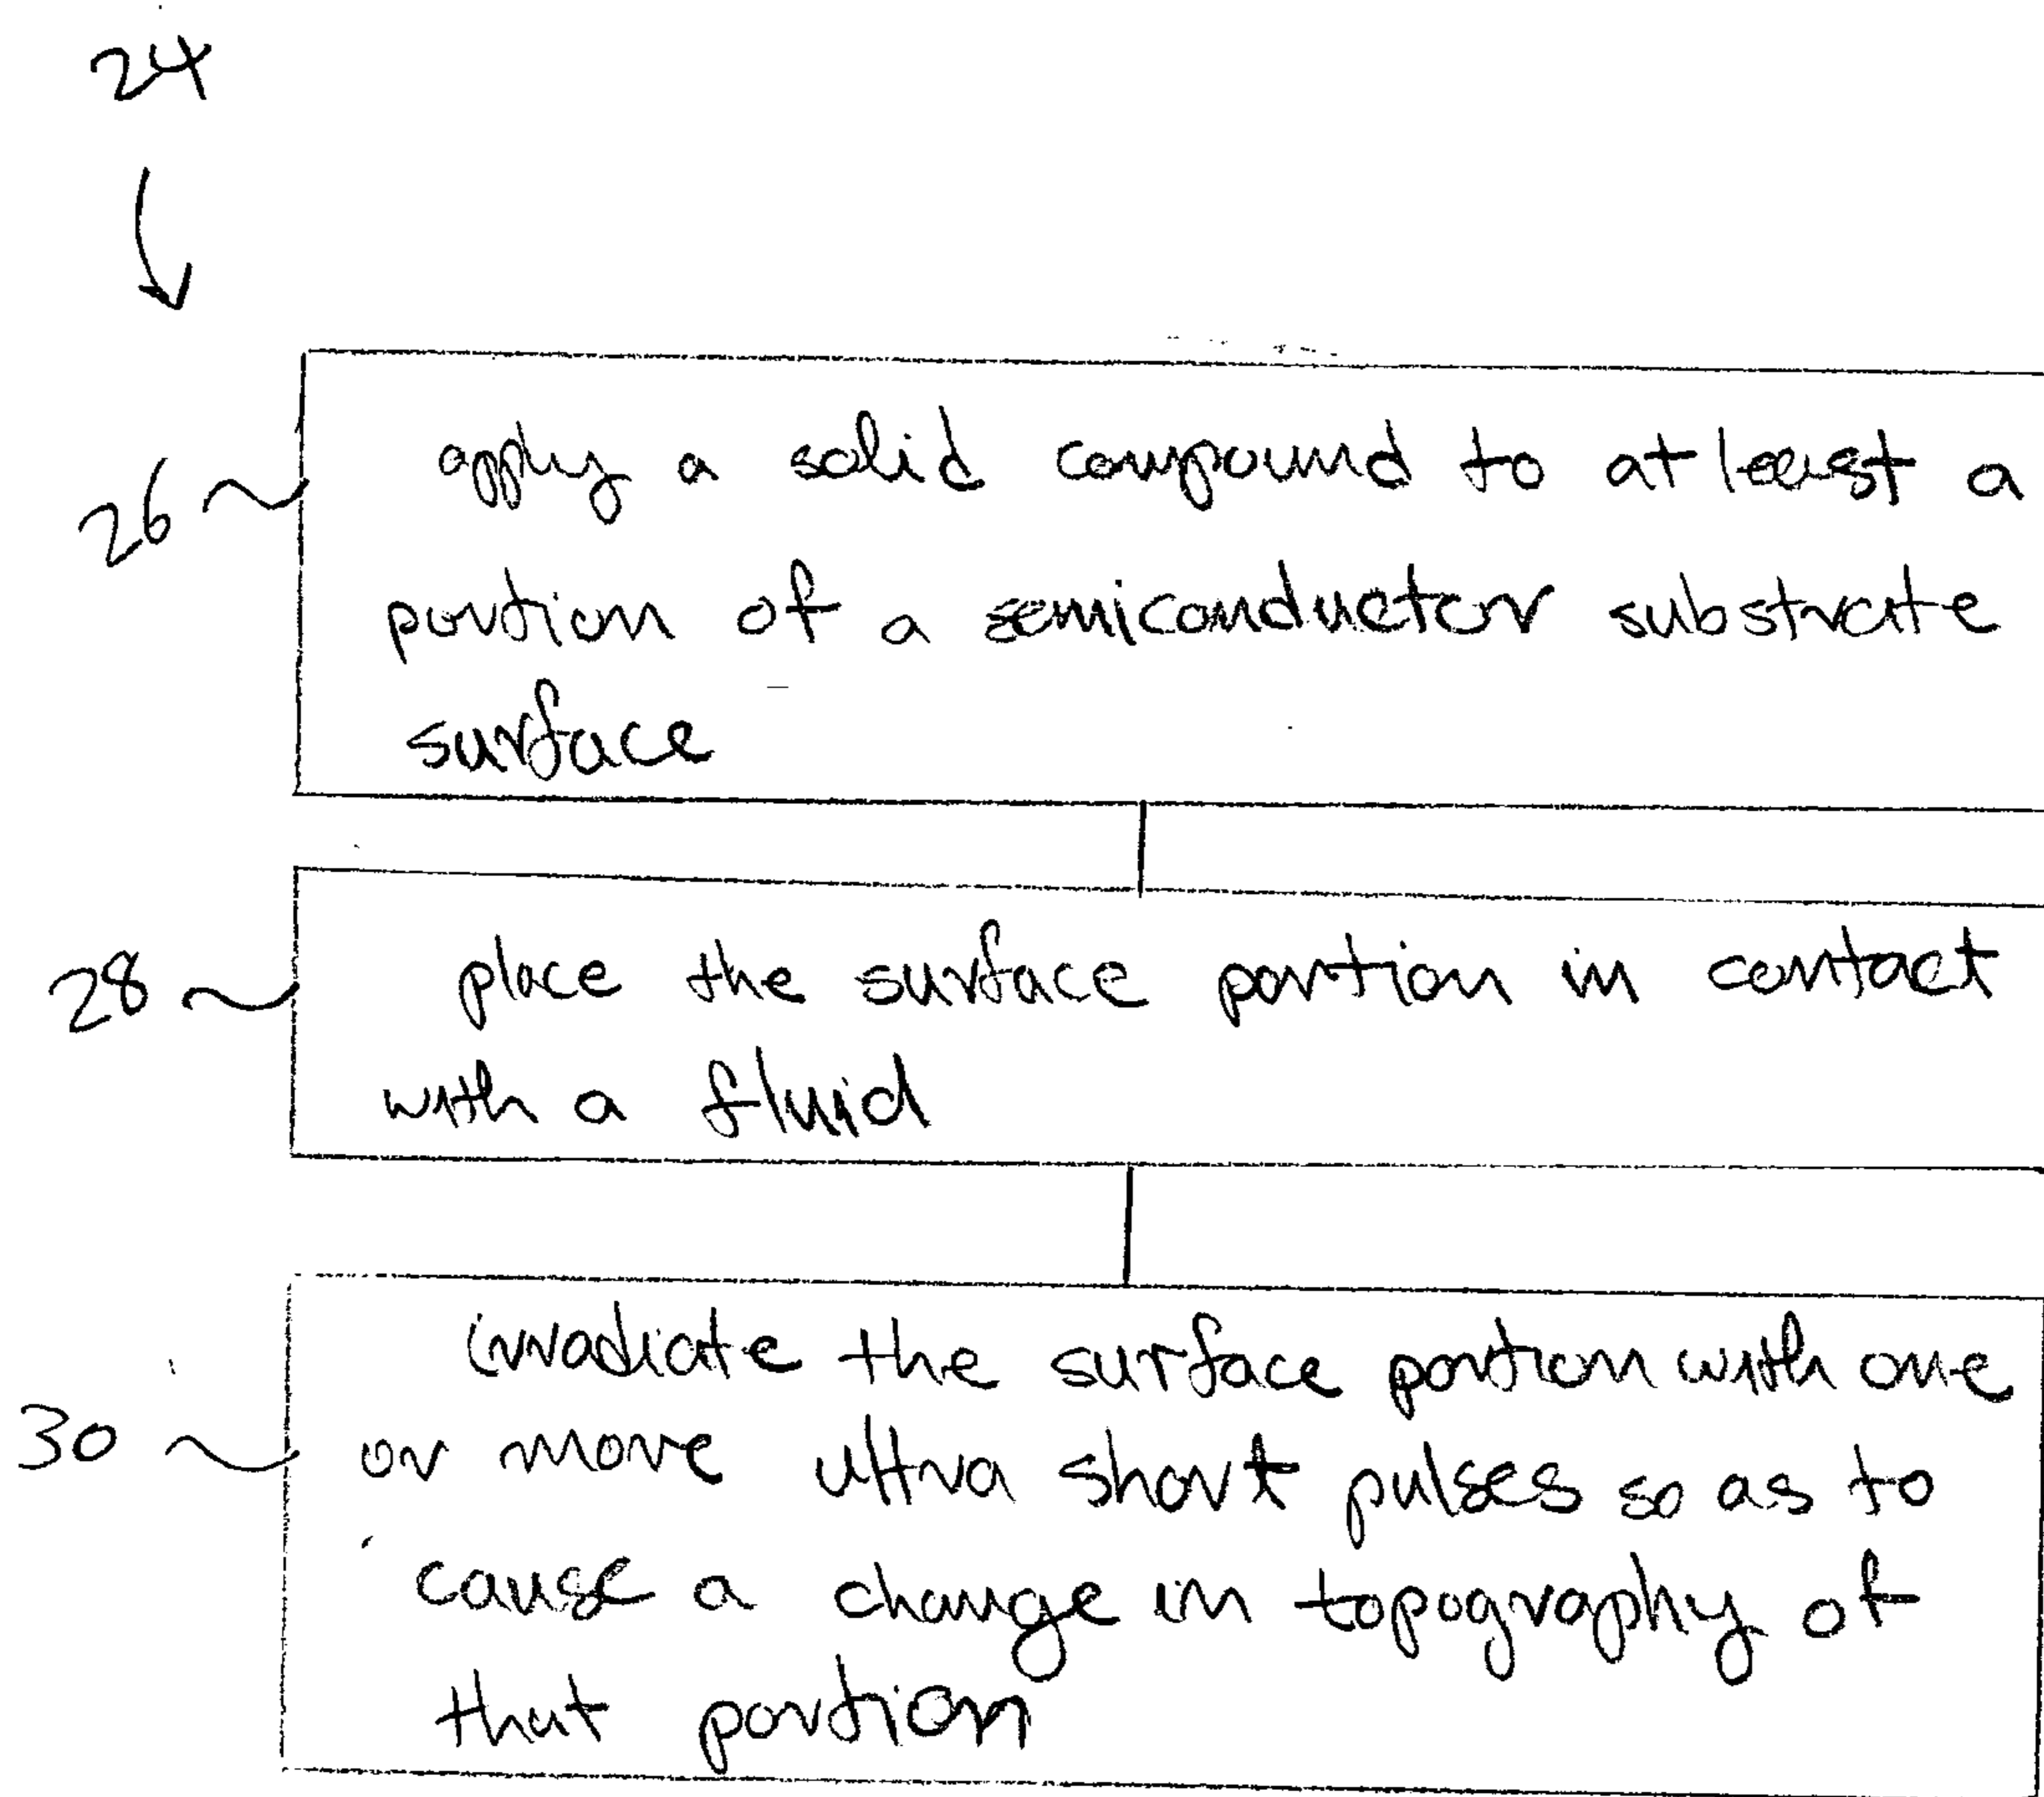 24
26
apply a solid compound to at least a
portion of a semiconductor substrate
surface
28
place the surface portion in contact
with a fluid
30
irradiate the surface portion with one
or more ultra short pulses so as to
cause a change in topography of
that portion